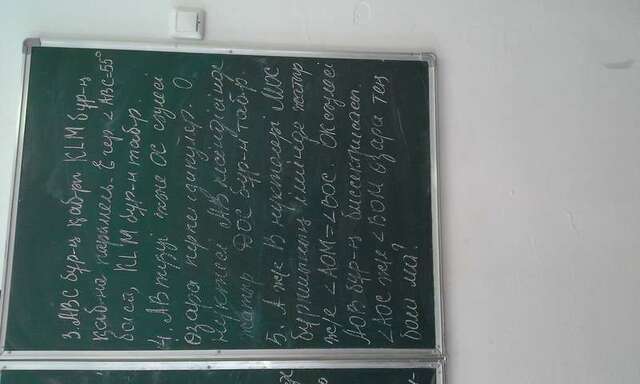 3. ABC бұр-ң қаб-ры KLM бұр-ң
қаб-на паралель. Егер ∠ABC=55°
болса, KLM бұр-н табр.
4. AB түзуі және OC сәулесі
өзара перпендикуляр. O
нүктесі AB кесіндісінде
жатыр DOC бұр-н табр.
5. A ж/е B нүктелері MOC
бұрышының ішінде жатыр
ж/е ∠AOM=∠BOC. OK сәулесі
AOB бұр-ң биссектрисасы.
∠AOC ж/е ∠BOM өзара тең
бола ма?